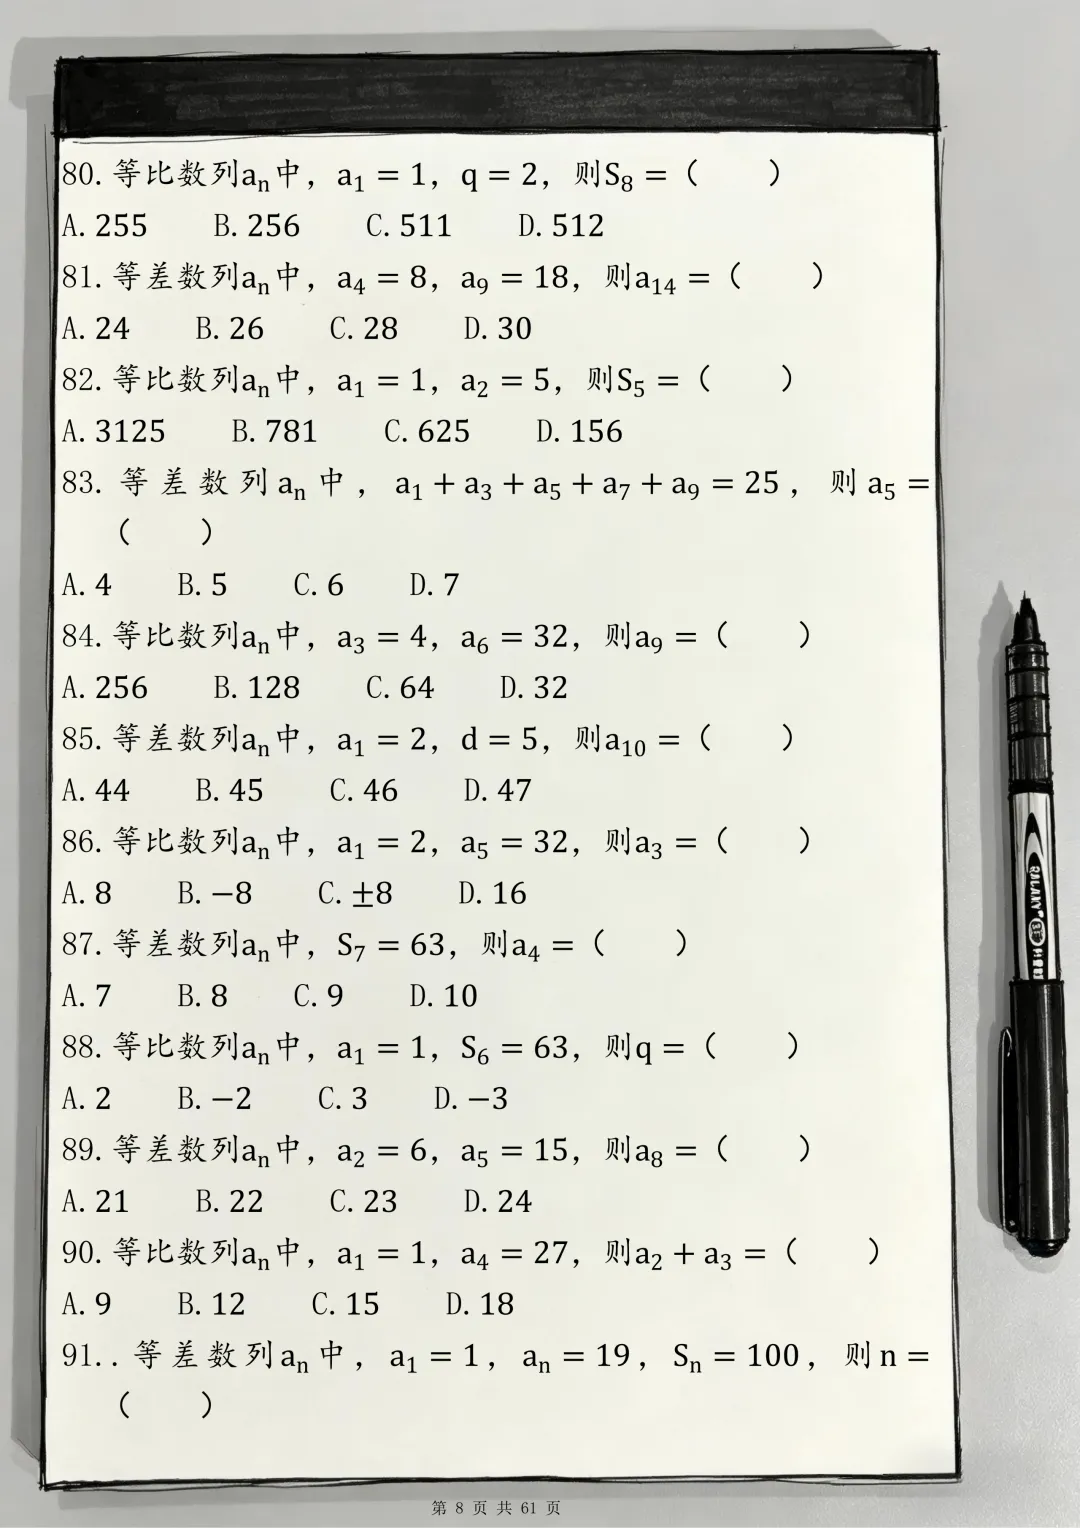 80. 等比数列aₙ中，a₁ = 1，q = 2，则S₈ =（　　）
A. 255　B. 256　C. 511　D. 512
81. 等差数列aₙ中，a₄ = 8，a₉ = 18，则a₁₄ =（　　）
A. 24　B. 26　C. 28　D. 30
82. 等比数列aₙ中，a₁ = 1，a₂ = 5，则S₅ =（　　）
A. 3125　B. 781　C. 625　D. 156
83. 等差数列aₙ中，a₁ + a₃ + a₅ + a₇ + a₉ = 25，则a₅ =
（　　）
A. 4　B. 5　C. 6　D. 7
84. 等比数列aₙ中，a₃ = 4，a₆ = 32，则a₉ =（　　）
A. 256　B. 128　C. 64　D. 32
85. 等差数列aₙ中，a₁ = 2，d = 5，则a₁₀ =（　　）
A. 44　B. 45　C. 46　D. 47
86. 等比数列aₙ中，a₁ = 2，a₅ = 32，则a₃ =（　　）
A. 8　B. −8　C. ±8　D. 16
87. 等差数列aₙ中，S₇ = 63，则a₄ =（　　）
A. 7　B. 8　C. 9　D. 10
88. 等比数列aₙ中，a₁ = 1，S₆ = 63，则q =（　　）
A. 2　B. −2　C. 3　D. −3
89. 等差数列aₙ中，a₂ = 6，a₅ = 15，则a₈ =（　　）
A. 21　B. 22　C. 23　D. 24
90. 等比数列aₙ中，a₁ = 1，a₄ = 27，则a₂ + a₃ =（　　）
A. 9　B. 12　C. 15　D. 18
91. . 等差数列aₙ中，a₁ = 1，aₙ = 19，Sₙ = 100，则n =
（　　）
第 8 页 共 61 页